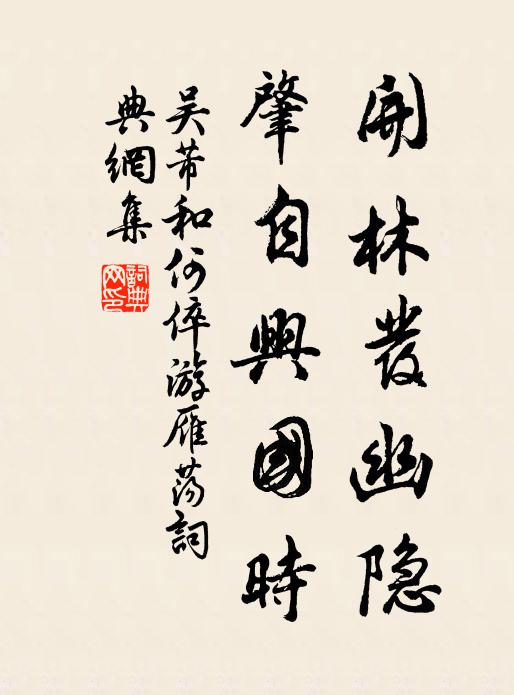 開林發幽隐
肇自興國時
吴芾和何倅游雁荡詞
典網集
詞典
网印